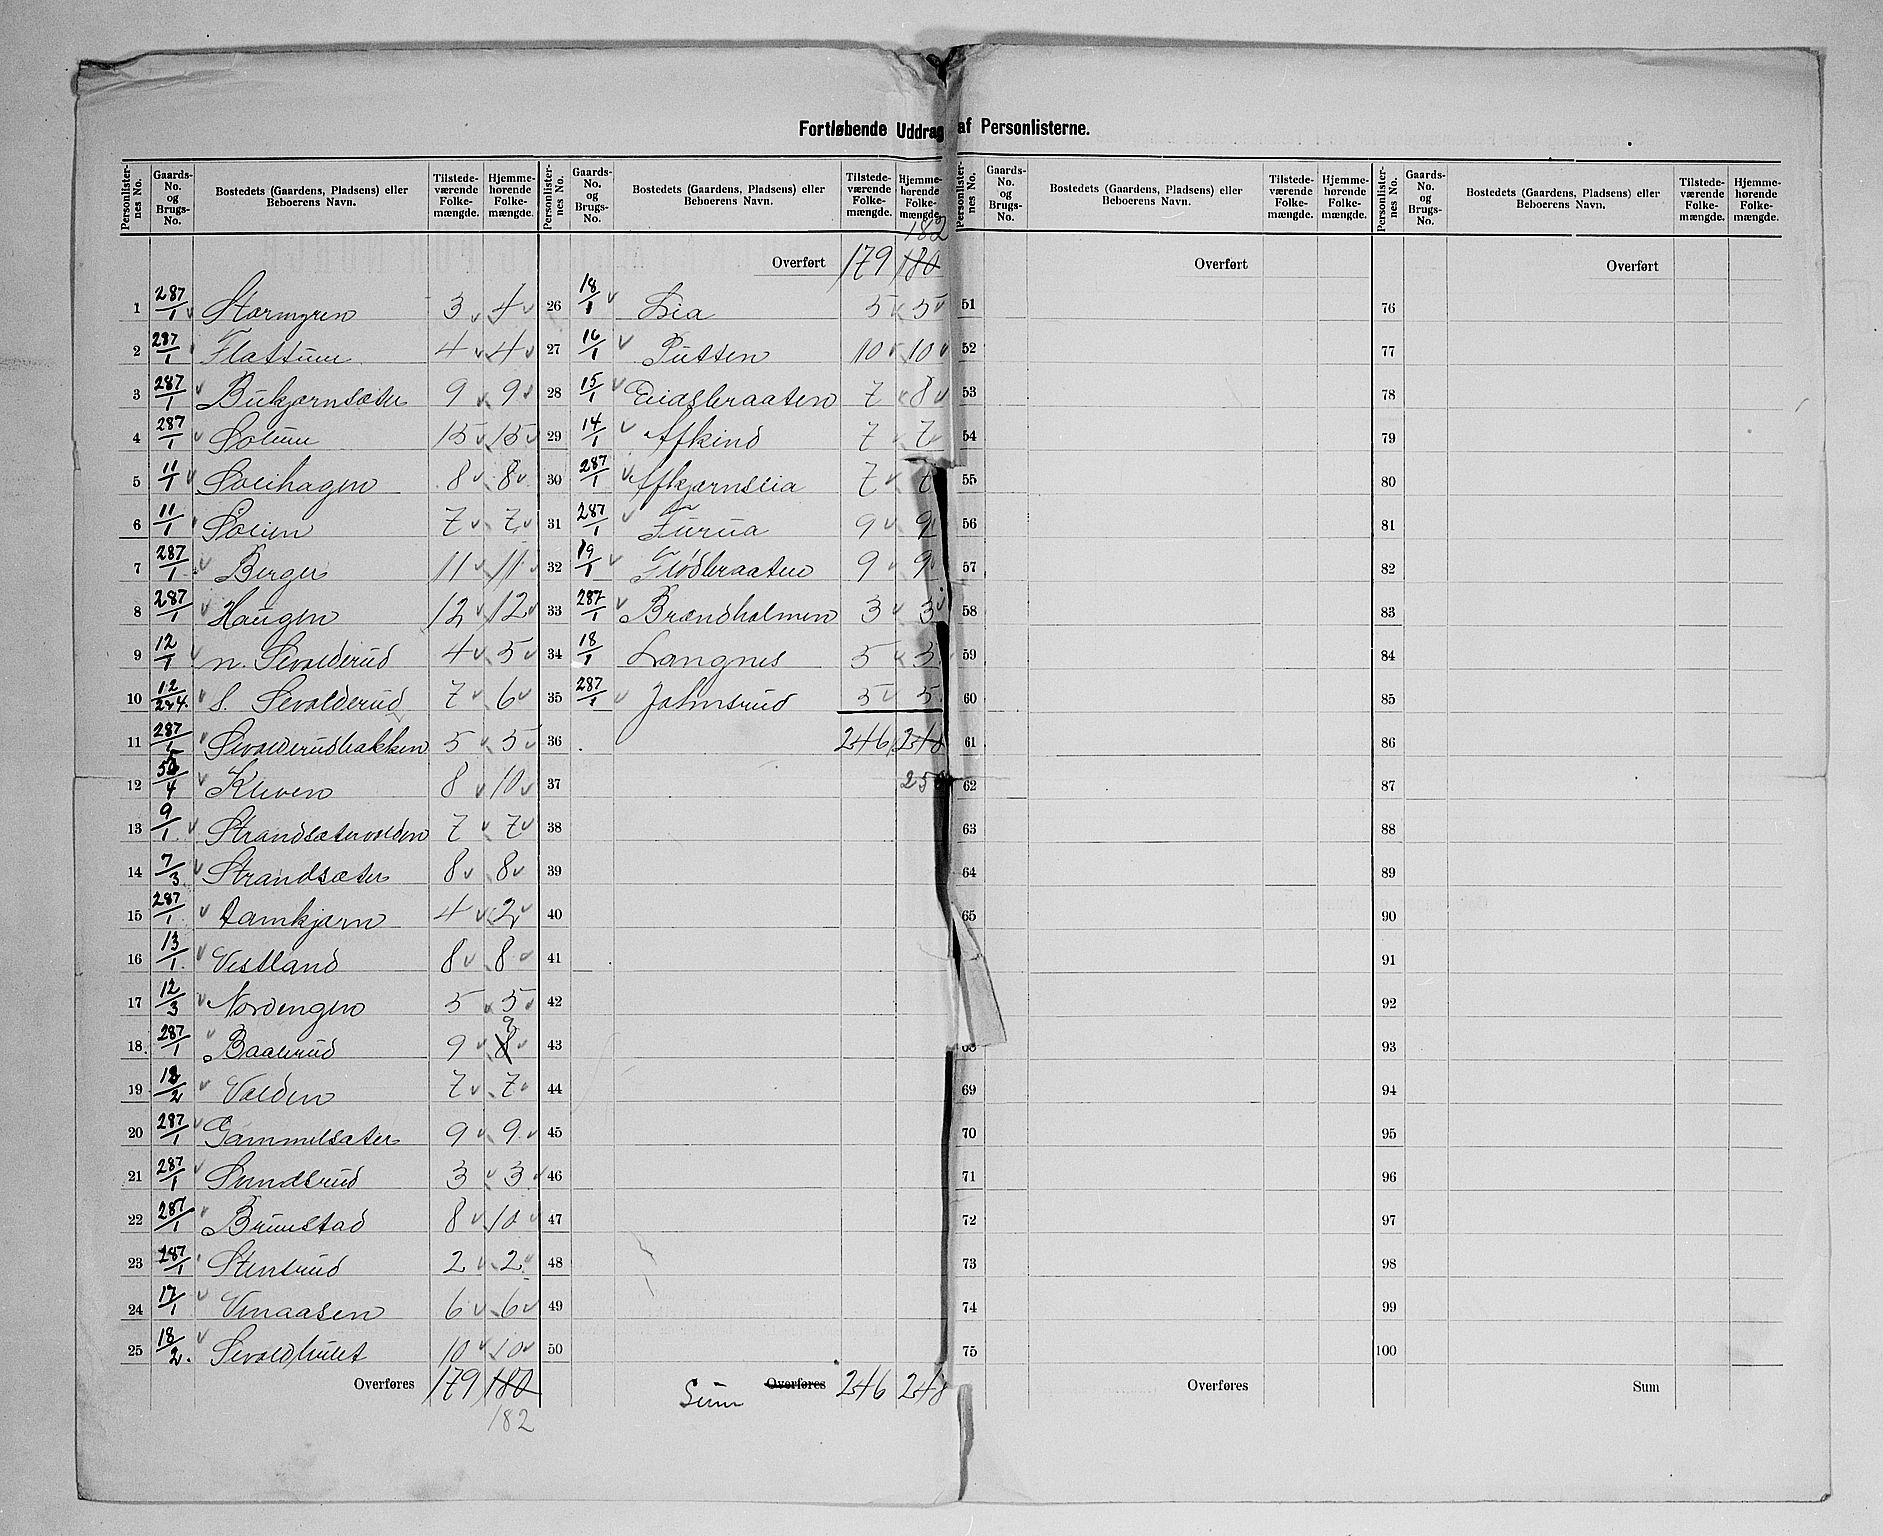 Fortløbende Uddrag af Personlisterne.
Personlisternes No. | Gaards-No. og Brugs-No. | Bostedets (Gaardens, Pladsens) eller Beboerens Navn. | Tilstedeværende Folkemængde. | Hjemmehørende Folkemængde. | Personlisternes No. | Gaards-No. og Brugs-No. | Bostedets (Gaardens, Pladsens) eller Beboerens Navn. | Tilstedeværende Folkemængde. | Hjemmehørende Folkemængde. | Personlisternes No. | Gaards-No. og Brugs-No. | Bostedets (Gaardens, Pladsens) eller Beboerens Navn. | Tilstedeværende Folkemængde. | Hjemmehørende Folkemængde. | Personlisternes No. | Gaards-No. og Brugs-No. | Bostedets (Gaardens, Pladsens) eller Beboerens Navn. | Tilstedeværende Folkemængde. | Hjemmehørende Folkemængde.
182
Overført 179 180 Overført Overført
1 287/1 Stormyren 3 4 26 18/1 Lia 5 5 51 76
2 287/1 Flattum 4 4 27 16/1 Putten 10 10 52 77
3 287/1 Bukjernsæter 9 9 28 15/1 Eidsbraaten 7 8 53 78
4 287/1 Solum 15 15 29 14/1 Askind 7 7 54 79
5 11/1 Solihagen 8 8 30 287/1 7 7 55 80
6 11/1 Solien 7 7 31 287/1 Furua 9 9 56 81
7 287/1 Berger 11 11 32 19/1 Flødbraaten 9 9 57 82
8 287/1 Haugen 12 12 33 287/1 Brændholmen 3 3 58 83
9 12/1 n. Sevalderud 4 5 34 18/1 Langnes 5 5 59 84
10 12/2&4. s. Sevalderud 7 6 35 287/1 Johnsrud 5 5 60 85
11 287/1 Sevalderudbakken 5 5 36 246 248 61 86
12 /4 Kliven 8 10 37 250 62 87
13 9/1 Strandsætervolden 7 7 38 63 88
14 7/3 Strandsæter 8 8 39 64 89
15 287/1 Damkjern 4 2 40 65 90
16 13/1 Vestland 8 8 41 91
17 12/3 Nordengen 5 5 42 92
18 287/1 Baalerud 9 8 9 43 68 93
19 /2 Volden 7 7 44 69 94
20 287/1 Gammelsæter 9 9 45 70 95
21 287/1 Sundsrud 3 3 46 71 96
22 287/1 Brunstad 8 10 47 72 97
23 287/1 Stensrud 2 2 48 73 98
24 17/1 Vinaasen 6 6 49 74 99
25 18/2. 10 10 50 75 100
Overføres 179 180 Sum Overføres 246 248 Overføres Sum
182